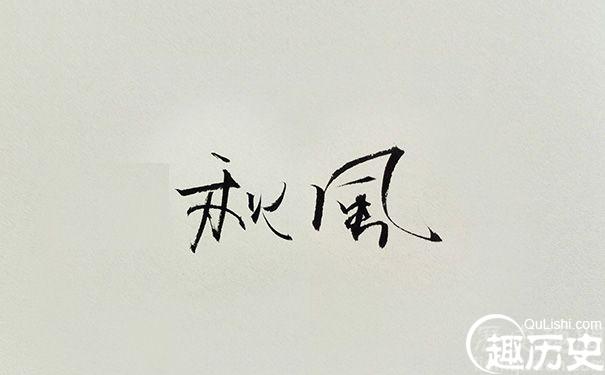 秋風
QuLishi.com
趣历史